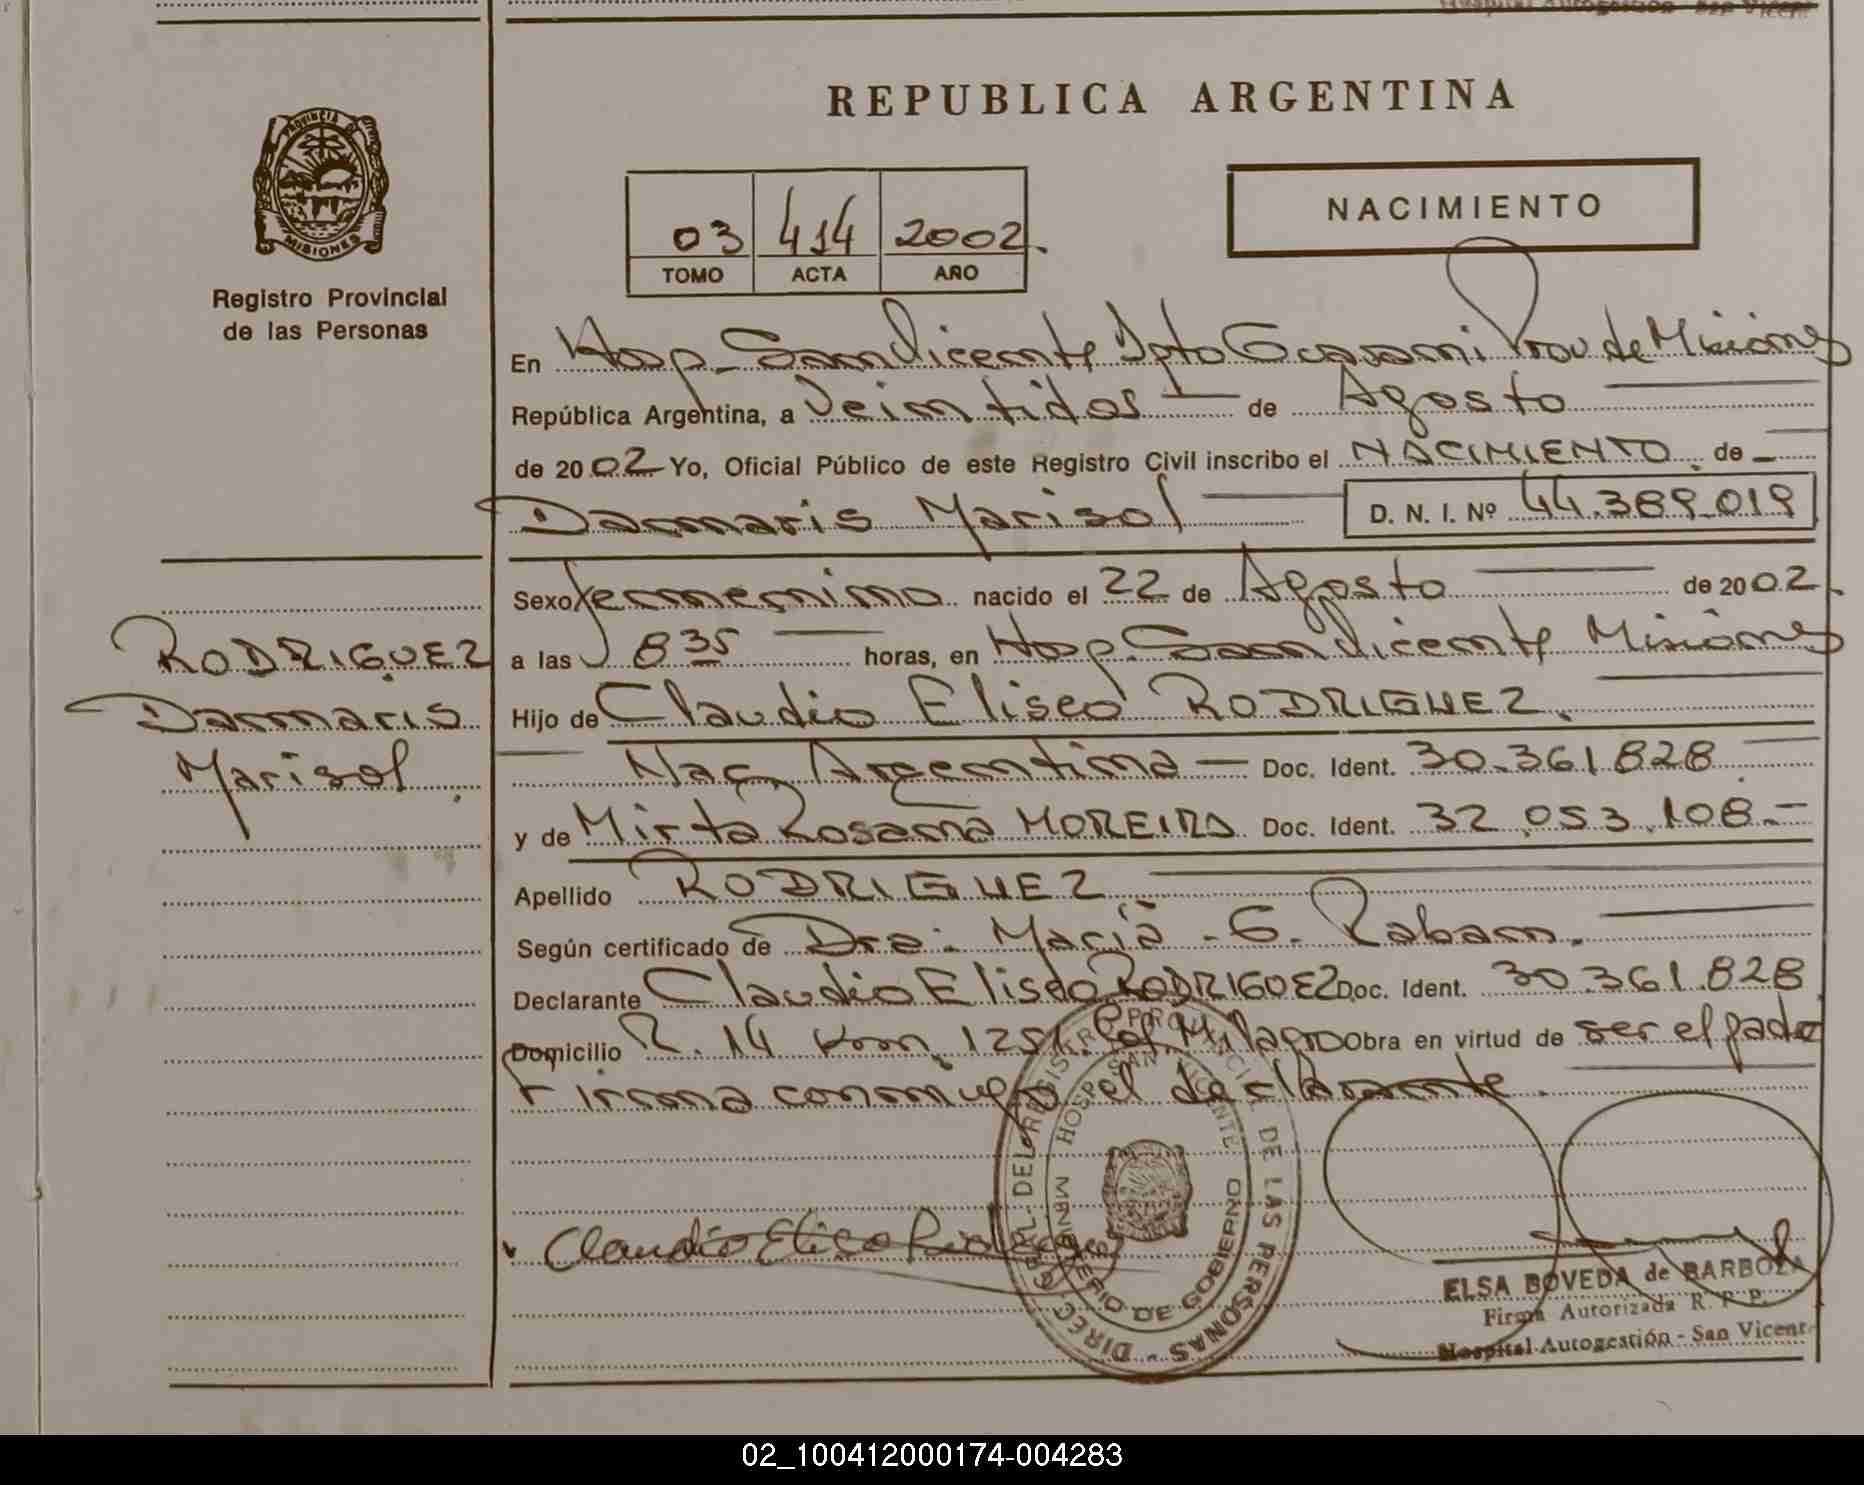 REPUBLICA ARGENTINA
PROVINCIA DE
MISIONES
Registro Provincial
de las Personas
03 414 2002.
TOMO ACTA AÑO
NACIMIENTO
En Hosp. San Vicente Dpto Guarani Prov de Misiones
República Argentina, a Veintidos — de Agosto
de 2002 Yo, Oficial Público de este Registro Civil inscribo el NACIMIENTO. de —
Damaris Marisol D. N. I. Nº 44.389.019
RODRIGUEZ
Damaris
Marisol.
Sexo femenino nacido el 22 de Agosto de 2002.
a las 8 35 horas, en Hosp. San Vicente Misiones
Hijo de Claudio Eliseo RODRIGUEZ.
Nac. Argentina — Doc. Ident. 30.361.828
y de Mirta Rosana MOREIRA Doc. Ident. 32.053.108.—
Apellido RODRIGUEZ
Según certificado de Dra. Maria - G. Raban.
Declarante Claudio Eliseo RODRIGUEZ Doc. Ident. 30.361.828
Domicilio R. 14 Km. 1251. Milagro Obra en virtud de ser el padre
Firma conmigo el declarante.
DIREC. GRAL. DEL REGISTRO PROVINCIAL DE LAS PERSONAS -
HOSP. SAN VICENTE
MINISTERIO DE GOBIERNO
Claudio Eliceo
ELSA BOVEDA de BARBOZA
Firma Autorizada R. P. P.
Hospital Autogestión - San Vicente
02_100412000174-004283